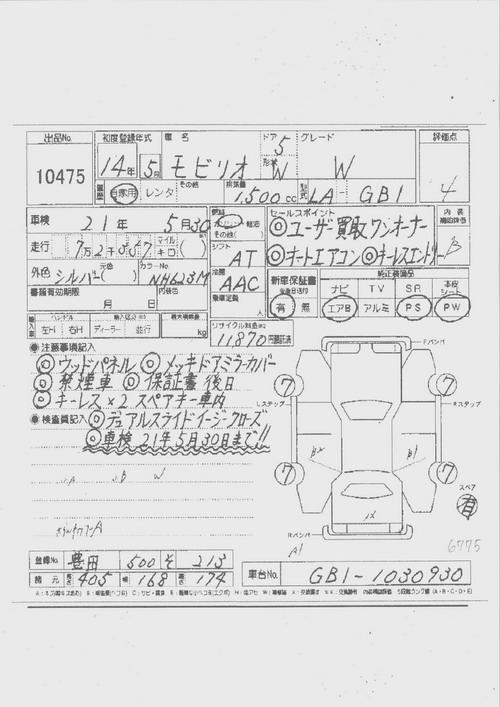 出品No. 初度登録年式 車名 ドア グレード 評価点
10475 14年 5月 モビリオ 5 形状 W W 4
履歴 自家用 レンタ その他 排気量 1,500cc 型式 LA GB1
車検 21年 5月30
走行 7万2千 マイル キロ
外色 シルバー 元色 カラーNo. NH623M 内装色
書類有効期限 月 日
燃料 ガソリン 軽油 その他
シフト AT
冷房 AAC
乗車定員 人
セールスポイント 内装補助評価
◎ユーザー買取 ワンオーナー B
◎オートエアコン ◎キーレスエントリー
新車保証書 有 無
純正装備品
ナビ TV SR 本皮シート
エアB アルミ PS PW
輸入車 ハンドル 左H 右H ディーラー 並行 最大積載量 kg
リサイクル料金 11,870円
●注意事項記入
◎ウッドパネル ◎メッキドアミラーカバー
◎禁煙車 ◎保証書後日
◎キーレス×2 スペアキー車内
●検査員記入 ◎デュアルスライドイージークローズ
◎車検21年5月30日まで!!
Fバンパ
Lステップ Rステップ
7 7
7 7
B1
スペア
有
Rバンパ
A1
6775
登録No. 豊田 500 そ 213
諸元 長さ 405 幅 168 高さ 174
車台No. GB1-1030930